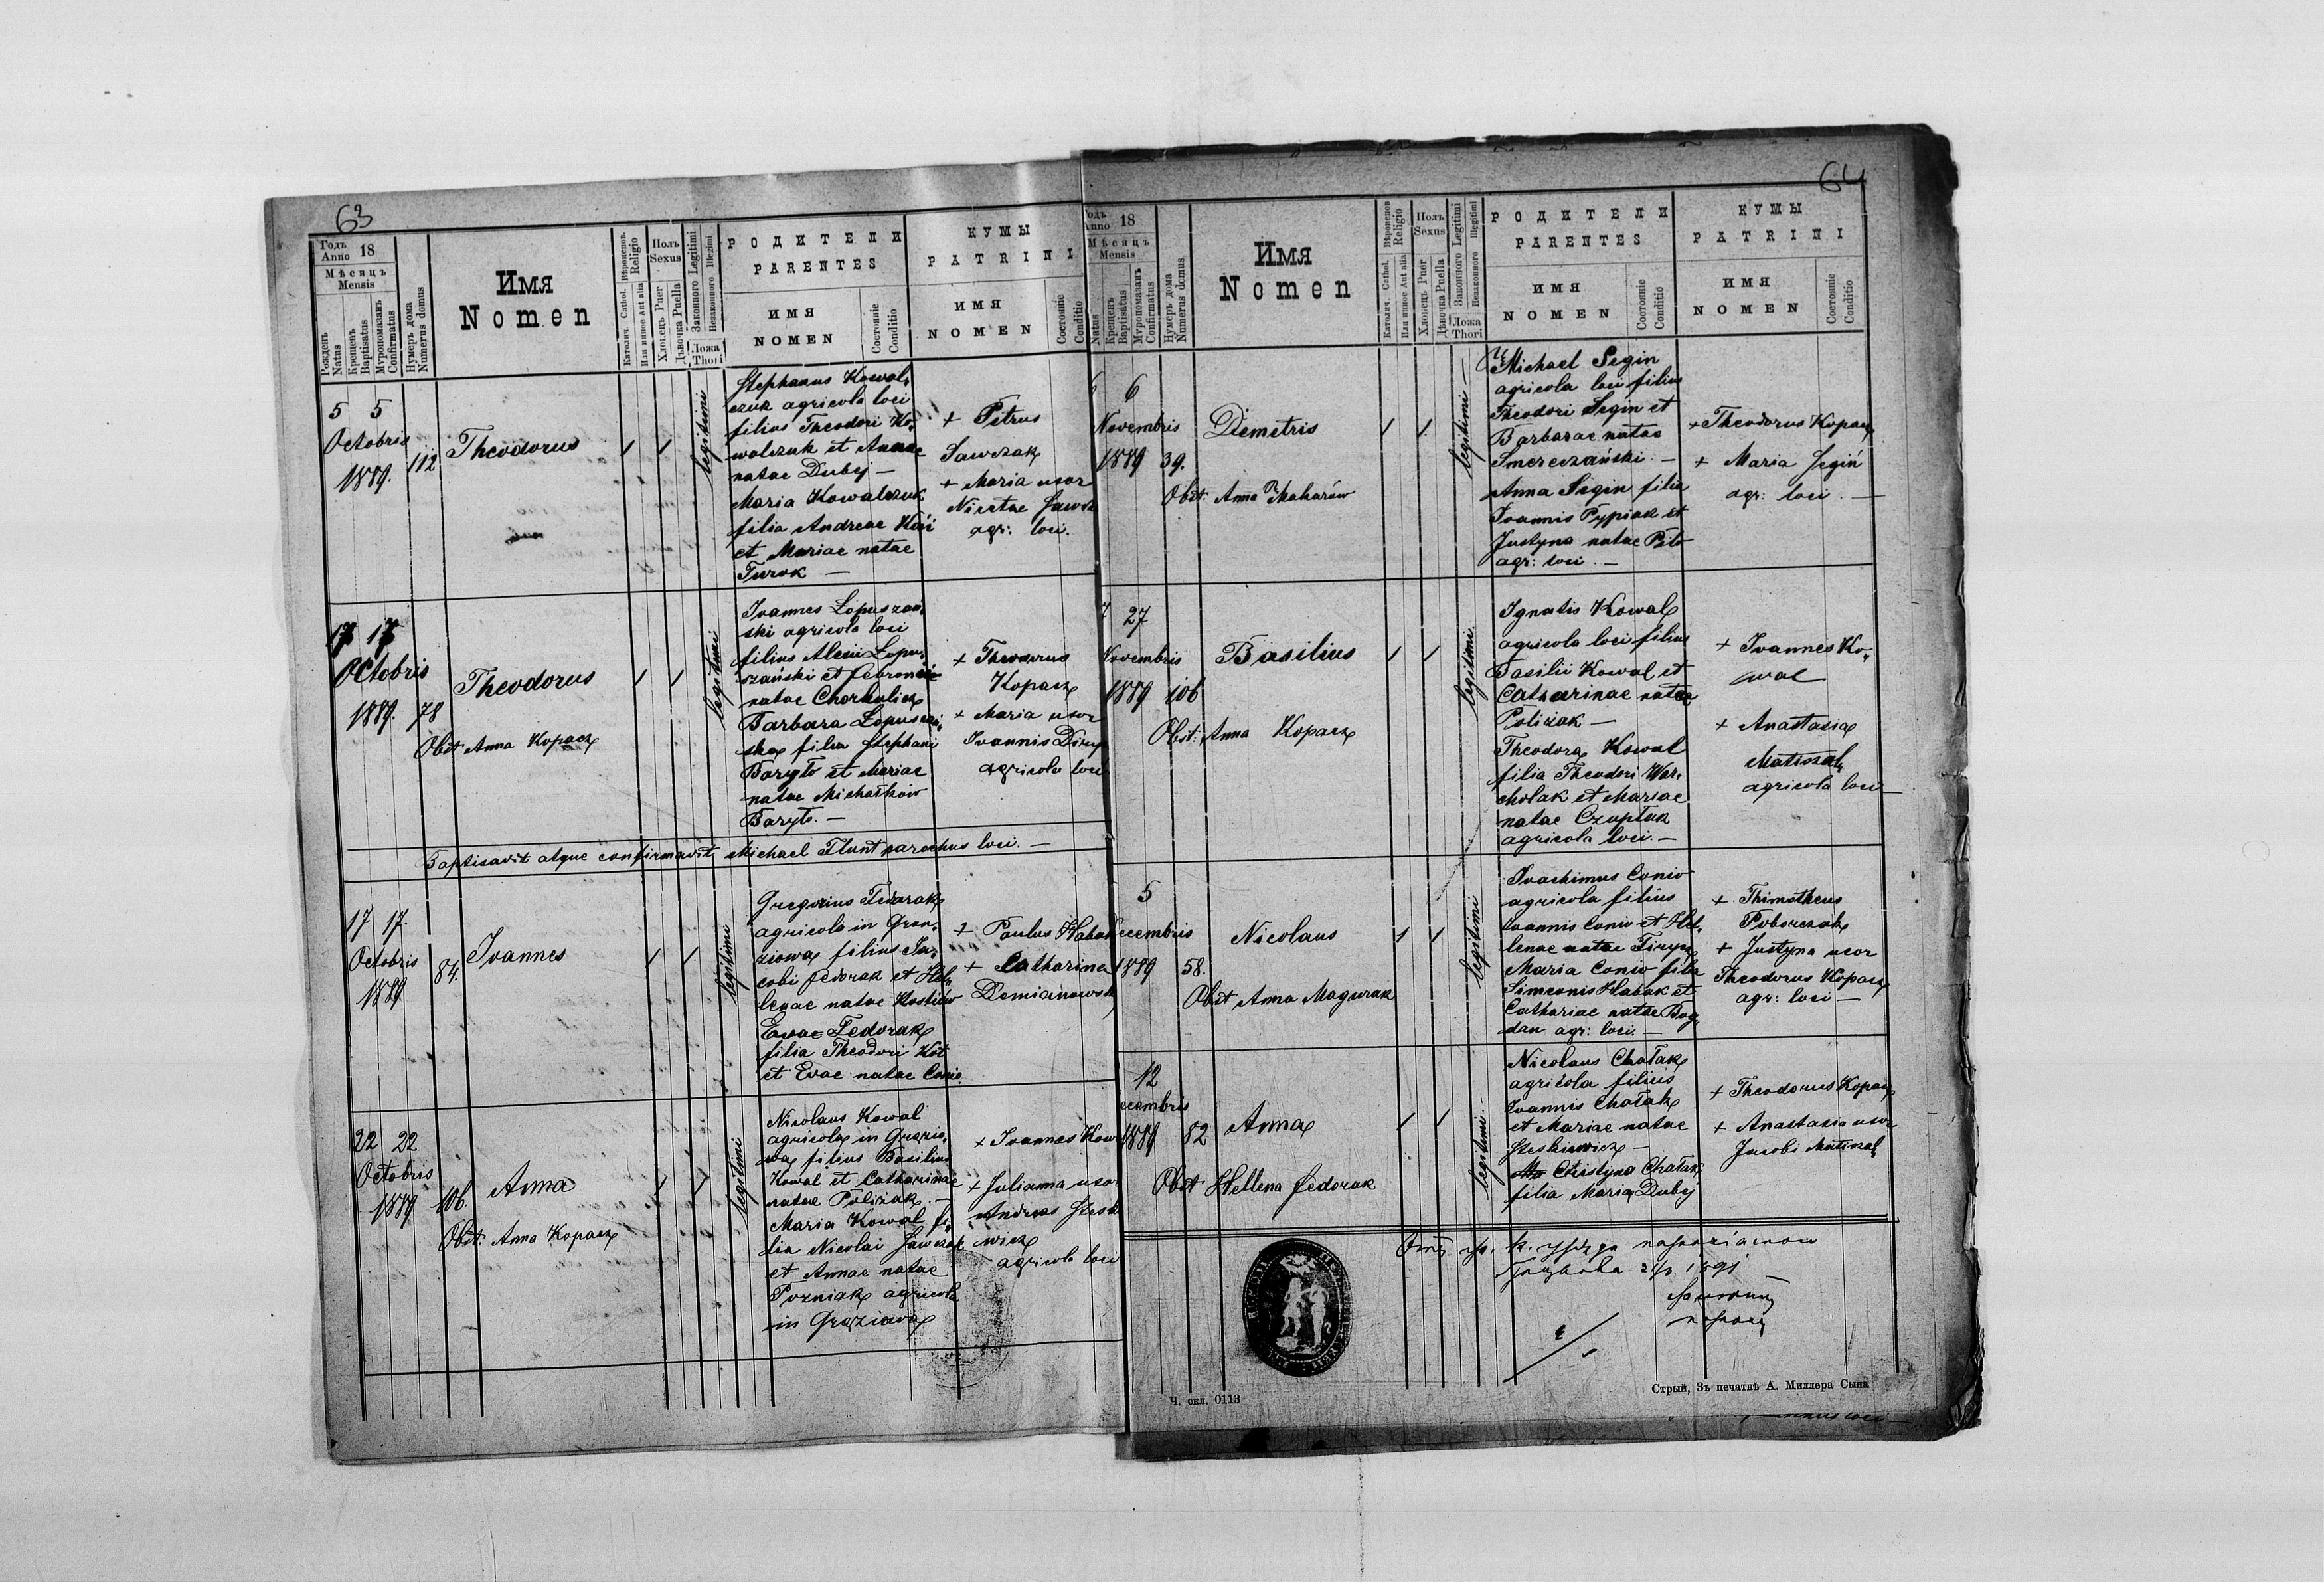 63
Годъ 18
Anno
Мѣсяцъ
Mensis
Рожденъ
Natus
Крещенъ
Baptisatus
Муропомазанъ
Confirmatus
Нумеръ дома
Numerus domus
Имя
Nomen
Вѣроиспов.
Religio
Католич. Cathol.
Или инное Aut alia
Полъ
Sexus
Хлопецъ Puer
Дѣвочка Puella
Законного Legitimi
Незаконного Illegitimi
Ложа
Thori
РОДИТЕЛИ
PARENTES
ИМЯ
NOMEN
Состояніе
Conditio
КУМЫ
PATRINI
ИМЯ
NOMEN
Состояніе
Conditio
5 5
Octobris
1889. 112
Theodorus
legitimi
Stephanus Kowal-
czuk agricola loci
filius Theodori Ko-
walczuk et Annae
natae Dubej —
Maria Kowalczuk
filia Andreae
et Mariae natae
Turok —
+ Petrus
Sawczak
+ Maria uxor
Nicetae
agr: loci.
17 17
Octobris
1889. 78
Theodorus
Obst: Anna Kopacz
legitimi
Ioannes Łopuszań-
ski agricola loci
filius Alexii Łopu-
szański et
natae
Barbara
filia Stephani
Baryło et Mariae
natae Michałków
Baryło. —
+ Theodorus
Kopacz
+ Maria uxor
Ioannis
agricola loci
Baptisavit atque confirmavit Michael Flunt parochus loci. —
17 17.
Octobris
1889 84.
Ioannes
legitimi
Gregorius Fedorak
agricola in Gron-
ziowa filius Ja-
cobi Fedorak et Hel-
lenae natae Kostiów
Evae Fedorak
filia Theodori Kot
et Evae natae Coniw
+ Paulus Habak
+ Catharina
22 22
Octobris
1889 106.
Anna
Obst: Anna Kopacz
legitimi
Nicolaus Kowal
agricola in Grązio-
wa filius Basilius
Kowal et Catharinae
natae Poliżak. —
Maria Kowal fi-
lia Nicolai Sawczak
et Annae natae
Pozniak agricola
in Grąziowa
+ Ioannes
+ Julianna uxor
Andreas
wicz
agricola loci
64
Годъ 18
Anno
Мѣсяцъ
Mensis
Natus
Крещенъ
Baptisatus
Муропомазанъ
Confirmatus
Нумеръ дома
Numerus domus
Имя
Nomen
Вѣроиспов
Religio
Католич. Cathol.
Или инное Aut alia
Полъ
Sexus
Хлопецъ Puer
Дѣвочка Puella
Законного Legitimi
Незаконного Illegitimi
Ложа
Thori
РОДИТЕЛИ
PARENTES
ИМЯ
NOMEN
Состояніе
Conditio
КУМЫ
PATRINI
ИМЯ
NOMEN
Состояніе
Conditio
6
Novembris
1889 39.
Demetris
Obst: Anna Maharów
legitimi —
Michael Segin
agricola loci filius
Theodori Segin et
Barbarae natae
Smereczański —
Anna Segin filia
Ioannis Pypiak et
Justyna natae
agr: loci. —
+ Theodorus Kopacz
+ Maria Segiń
agr: loci. —
27
Novembris
1889 106
Basilius
Obst: Anna Kopacz
legitimi.
Ignatis Kowal
agricola loci filius
Basilii Kowal et
Catharinae natae
Poliżak —
Theodora Kowal
filia Theodori War-
cholak et Mariae
natae Czuptak
agricola loci. —
+ Ioannes Ko-
wal
+ Anastasia
agricola loci —
5
ecembris
1889 58.
Nicolaus
Obst Anna Magurak
legitimi
Ioachimus Coniw
agricola filius
Ioannis Coniw et Hel-
lenae natae
Maria Coniw filia
Simeonis Habak et
Cathariae natae Bog-
dan agr: loci. —
+ Thimotheus
+ Justyna uxor
Theodorus Kopacz
agr: loci —
12
ecembris
1889 82
Anna
Obst Hellena Fedorak
legitimi. —
Nicolaus Chałak
agricola filius
Ioannis Chałak
et Mariae natae
—
Christyna Chałak
filia Maria Dubej
+ Theodorus Kopacz
+ Anastasia uxor
Jacobi
1891
Ч. скл. 0113
Стрый, Зъ печатнѣ А. Миллера Сына